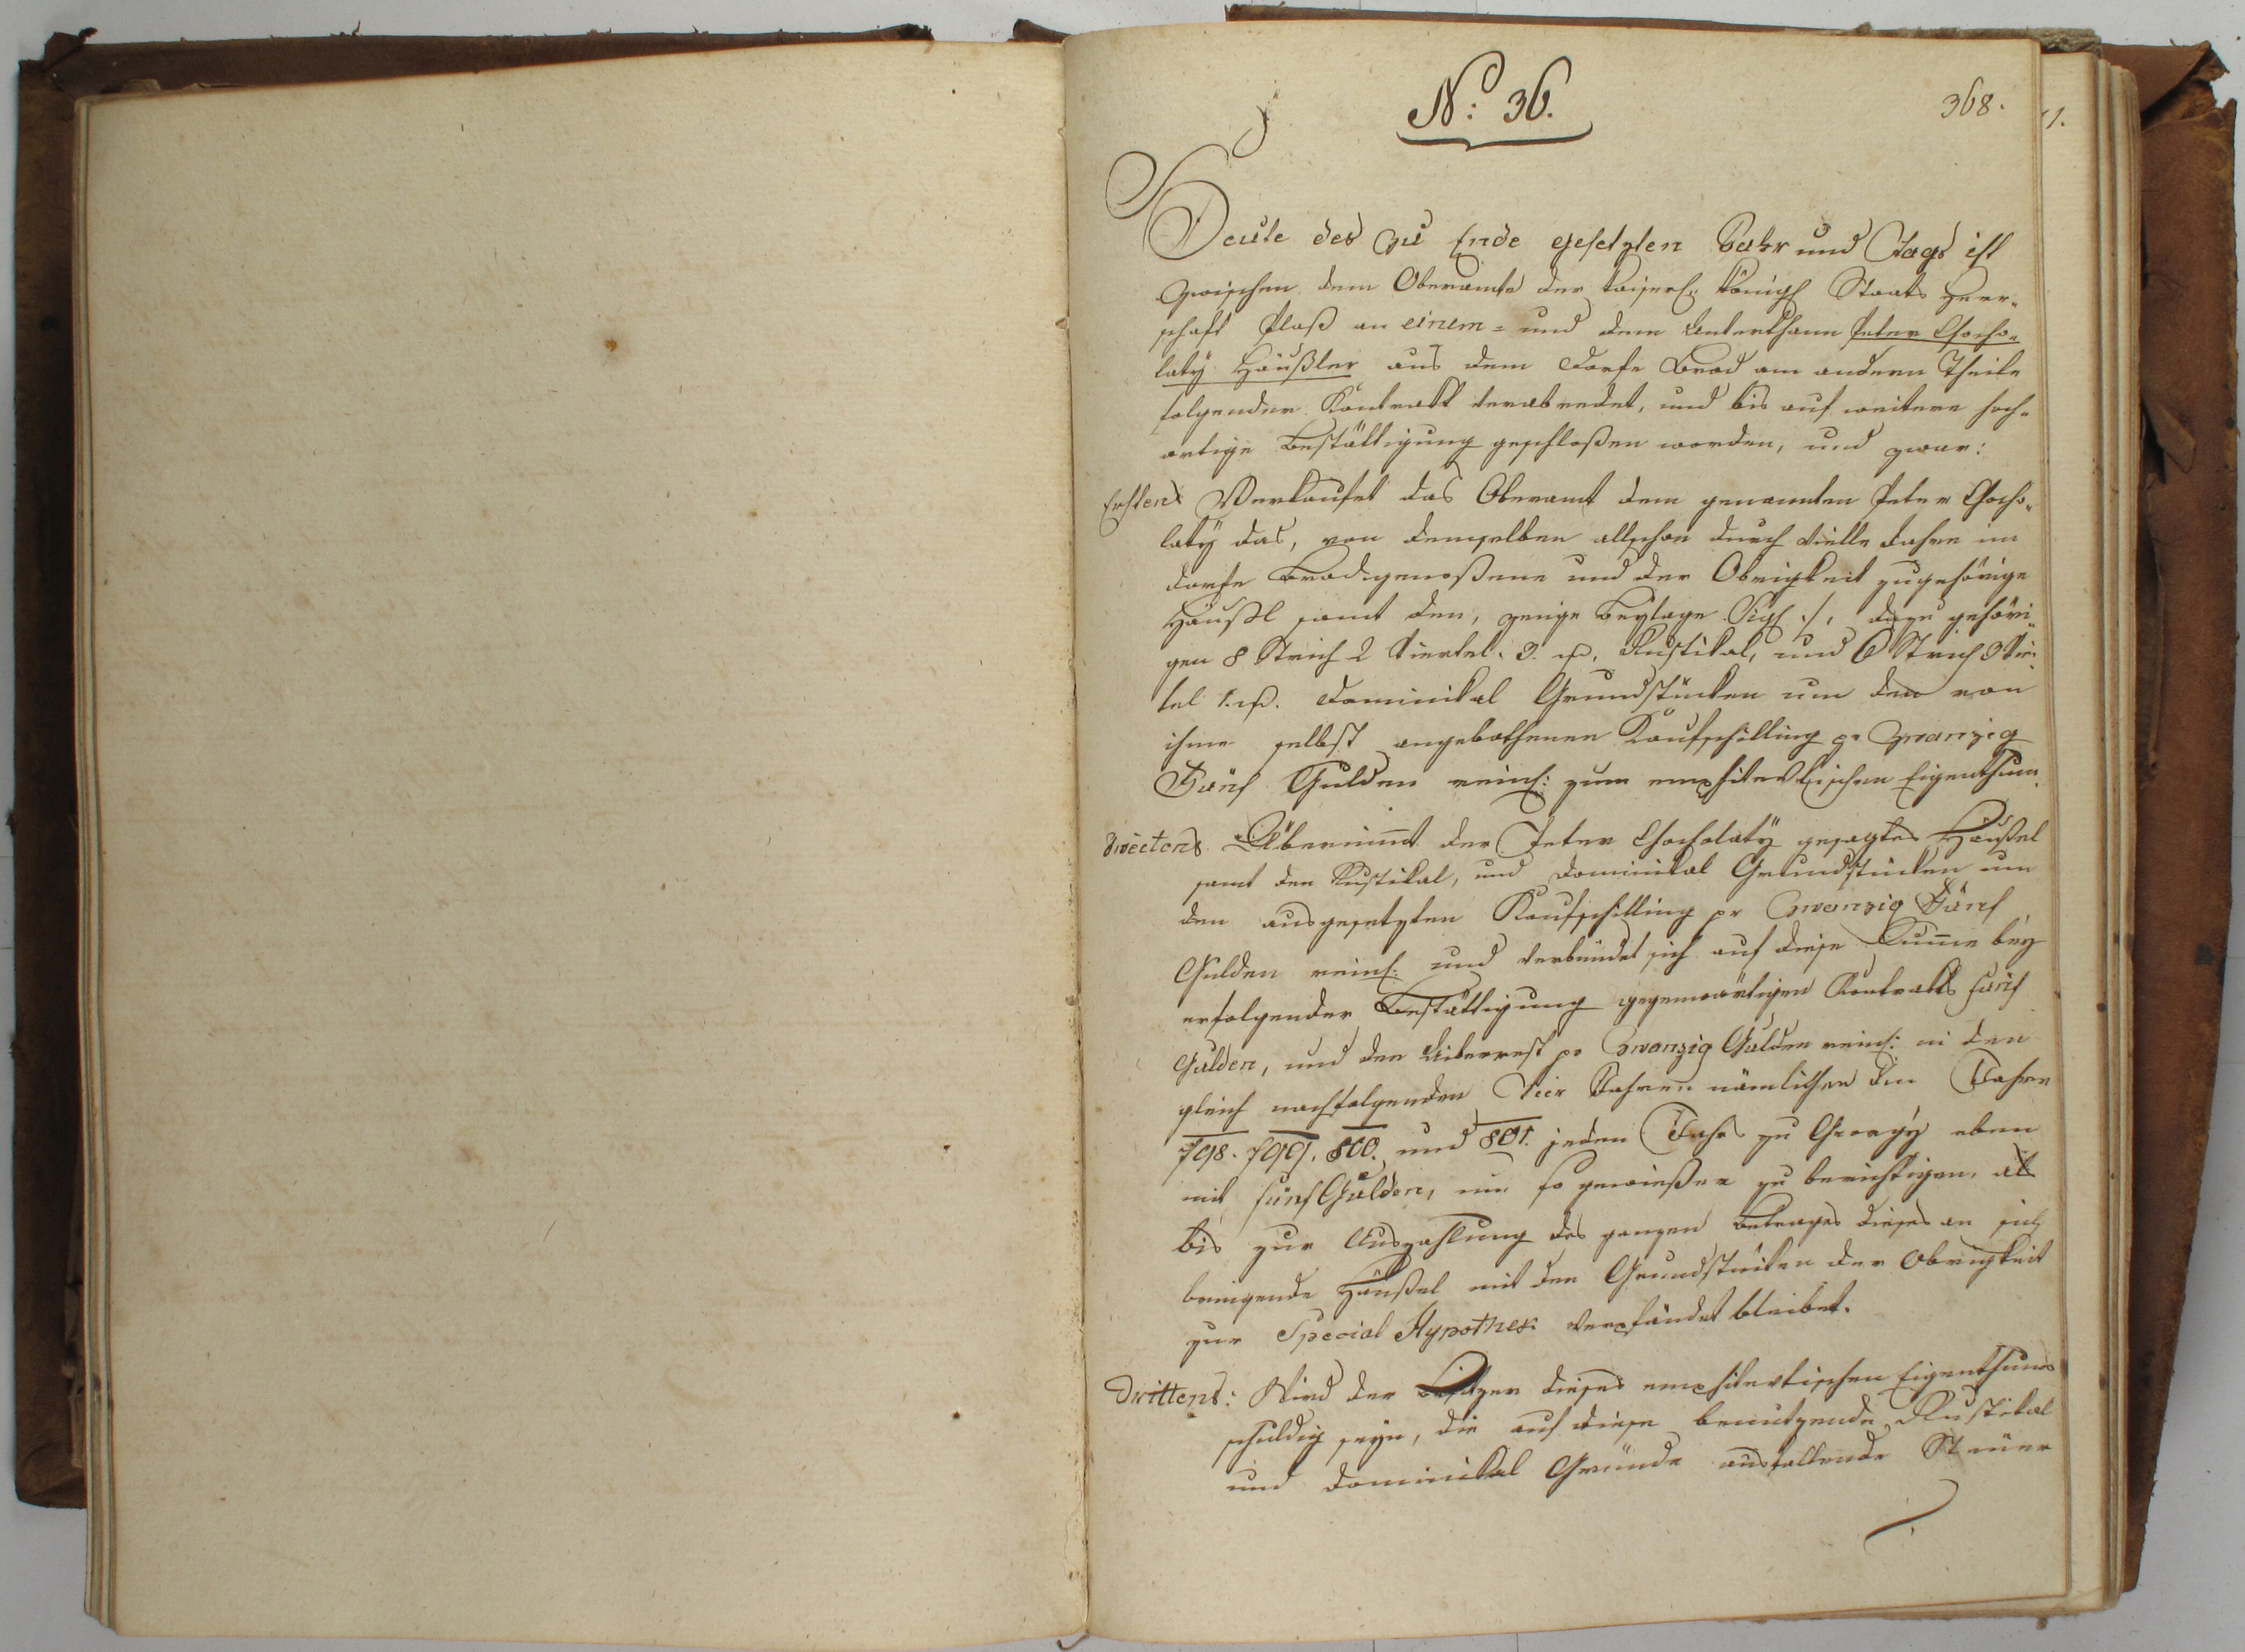 N: 36.
368.
1.
Heute des zu Ende gesetzten Jahr und Tags ist
zwischen dem Oberamte der kaiserl: königl Staats Herr-
schaft Plaß an einem = und dem Unterthann Peter Chocho-
latÿ Häußler aus dem Dorfe Brod am andern Theile
folgender Kontrakt verabredet, und bis auf weitere hoch-
ortige Bestättigung geschloßen worden, und zwar:
Erstens Verkaufet das Oberamt dem genannten Peter Chocho-
latÿ das, von demselben allschon durch vielle Jahre im
Dorfe Brod genoßene und der Obrigkeit zugehörige
Häußl samt den, zeige Beylage Sigl ·/. dazu gehöri-
gen 8 Strich 2 Viertel. 3. Rustikal, und 6 Strich 3 Vier
tel 1. Dominikal Grundstücken um den von
ihme selbst angebothenen Kaufschilling pr Zwanzig
Fünf Gulden reinl: zum emphitevtischen Eigenthum.
Zweitens Übernimt der Peter Chocholatÿ gesagtes Häußel
samt den Rustikal, und Dominikal Grundstücken um
den ausgesetzten Kaufschilling pr Zwanzig Fünf
Gulden reinl. und verbindet sich auf diese Sume bey
erfolgender Bestättigung gegenwärtigen Kontrakts fünf
Gulden, und den Uiberrest pr Zwanzig Gulden reinl: in den
gleich nachfolgenden Vier Jahren nämlichen Jahre
798. 799. 800. und 801. jeden Jahrs zu Georgÿ eben
mit fünf Gulden, um so gewießer zu berichtigen, als
bis zur Auszahlung des ganzen Betrages dieses an sich
bringende Häußel mit den Grundstücken der Obrigkeit
zur Special Hypothek verpfändet bleibet.
Drittens: Wird der Besitzer dieses emphitevtischen Eigenthums
schuldig seyn, die auf diese benutzende Rustikal
und Dominikal Gründe ausfallende Steuer